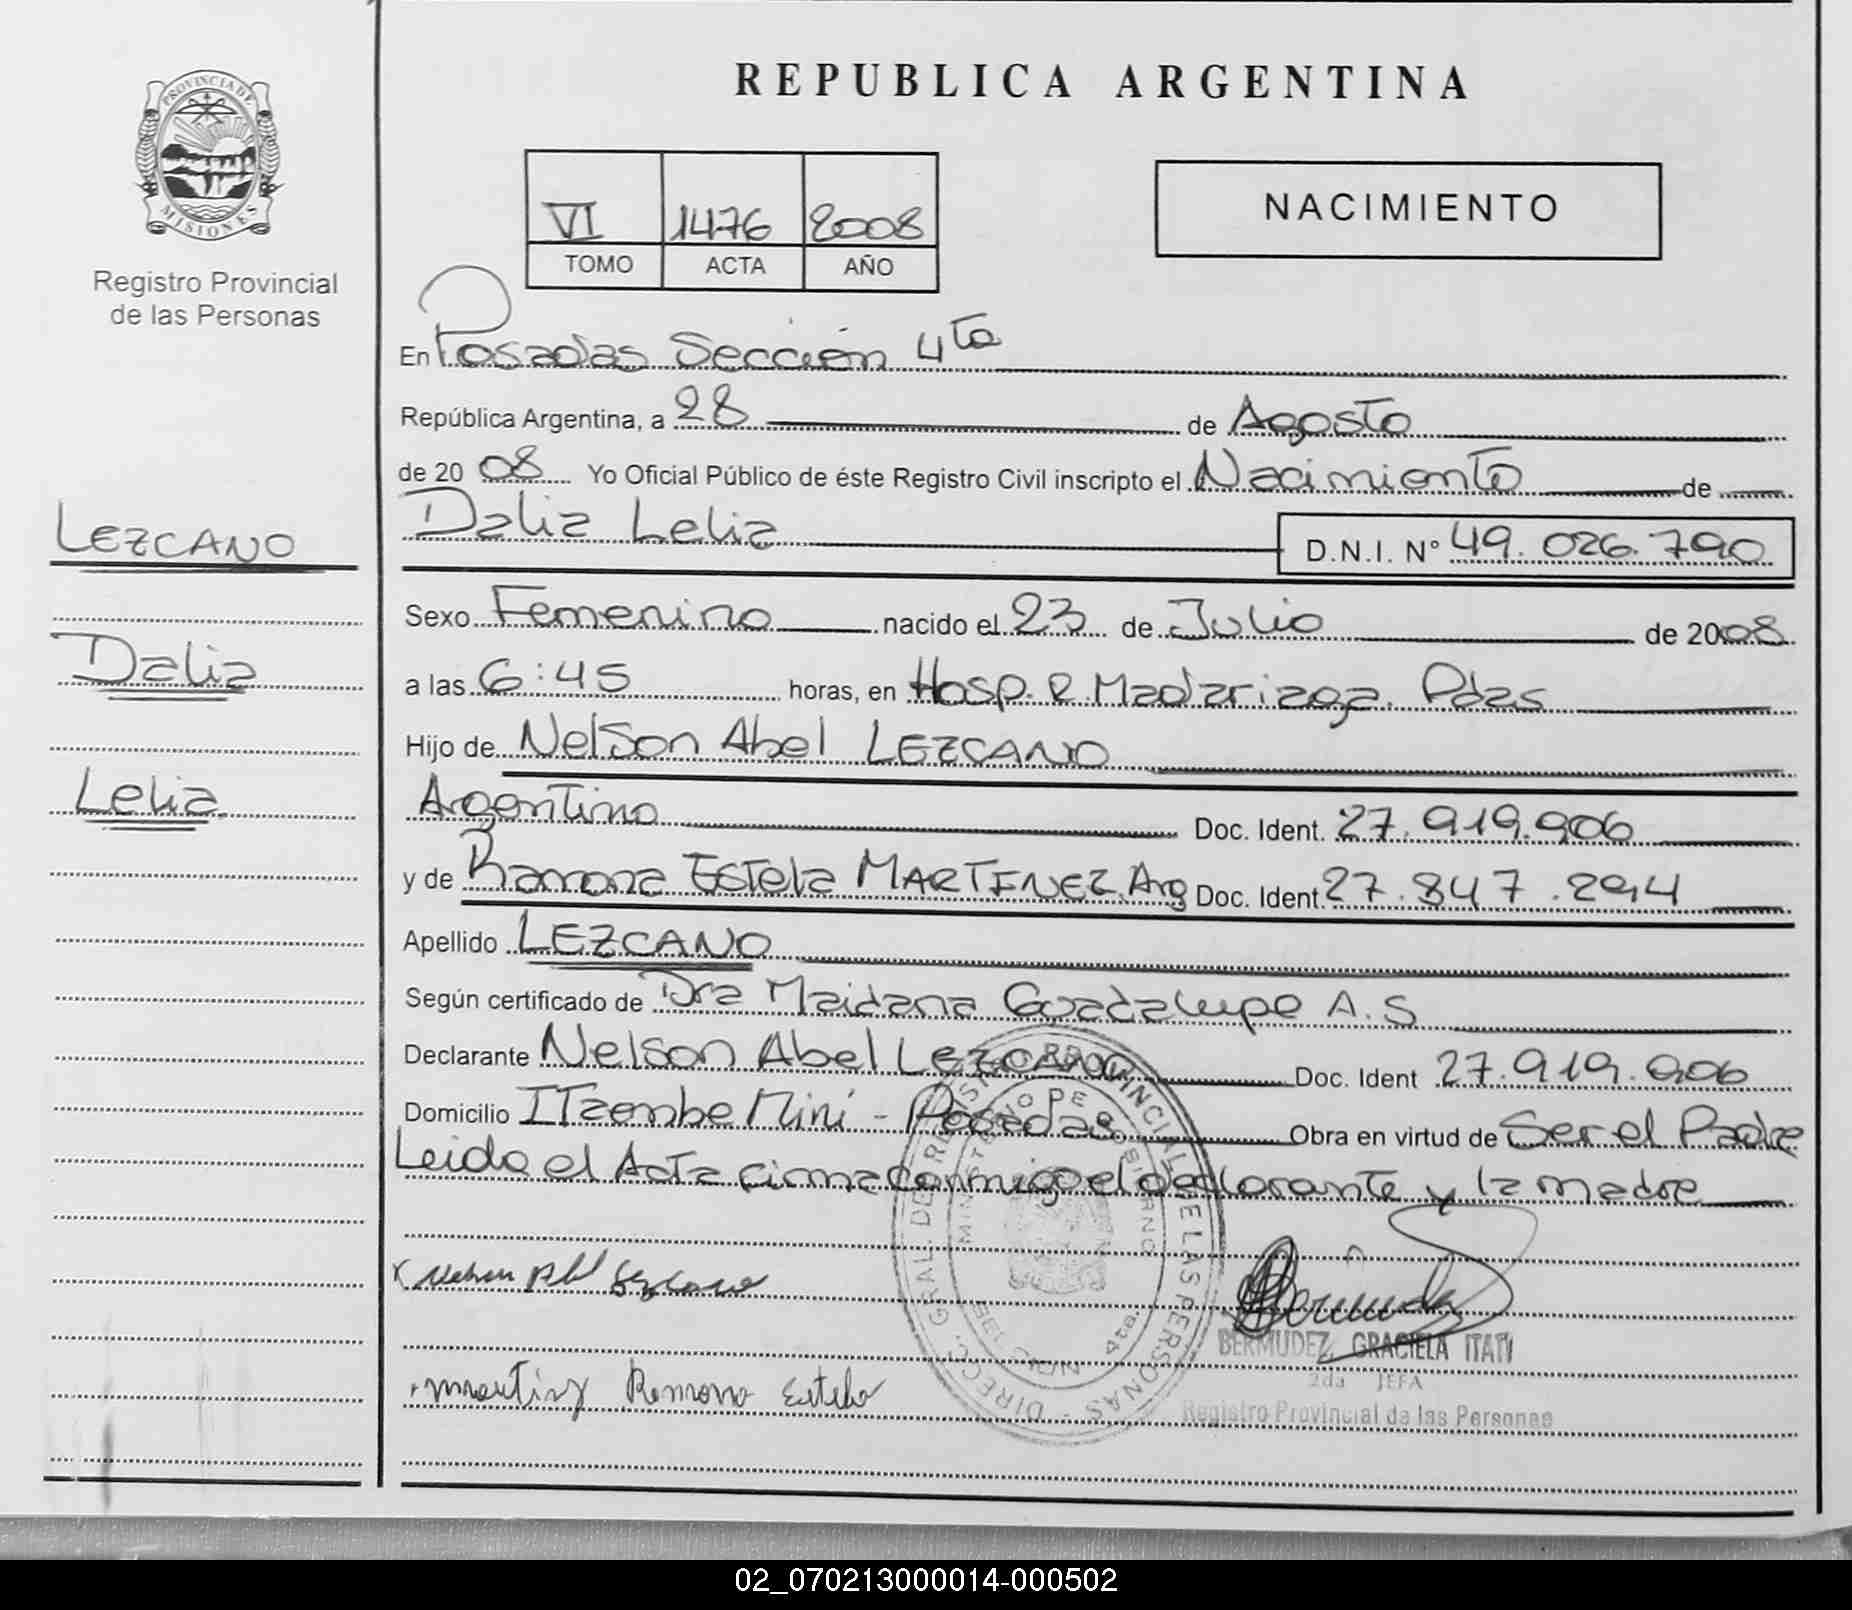 REPUBLICA ARGENTINA
PROVINCIA DE
MISIONES
Registro Provincial
de las Personas
VI 1476 2008
TOMO ACTA AÑO
NACIMIENTO
En Posadas Sección 4ta
República Argentina, a 28 de Agosto
de 2008 Yo Oficial Público de éste Registro Civil inscripto el Nacimiento de
Dalia Lelia D.N.I. N° 49.026.790
LEZCANO
Dalia
Lelia
Sexo Femenino nacido el 23 de Julio de 2008
a las 6:45 horas, en Hosp. R. Madariaga. Pdas
Hijo de Nelson Abel LEZCANO
Argentino Doc. Ident. 27.919.906
y de Ramona Estela MARTINEZ Arg Doc. Ident. 27.847.294
Apellido LEZCANO
Según certificado de Dra Maidana Guadalupe A.S
Declarante Nelson Abel Lezcano Doc. Ident 27.919.906
Domicilio Itaembe Mini - Posadas Obra en virtud de Ser el Padre
Leido el Acta firma conmigo el declarante y la madre
DIRECC. GRAL. DE REGISTRO PROVINCIAL DE LAS PERSONAS
MINISTERIO DE GOBIERNO
4ta.
Nelson Abel Lezcano
BERMUDEZ, GRACIELA ITATI
2da JEFA
Registro Provincial de las Personas
Martinez Ramona Estela
02_070213000014-000502